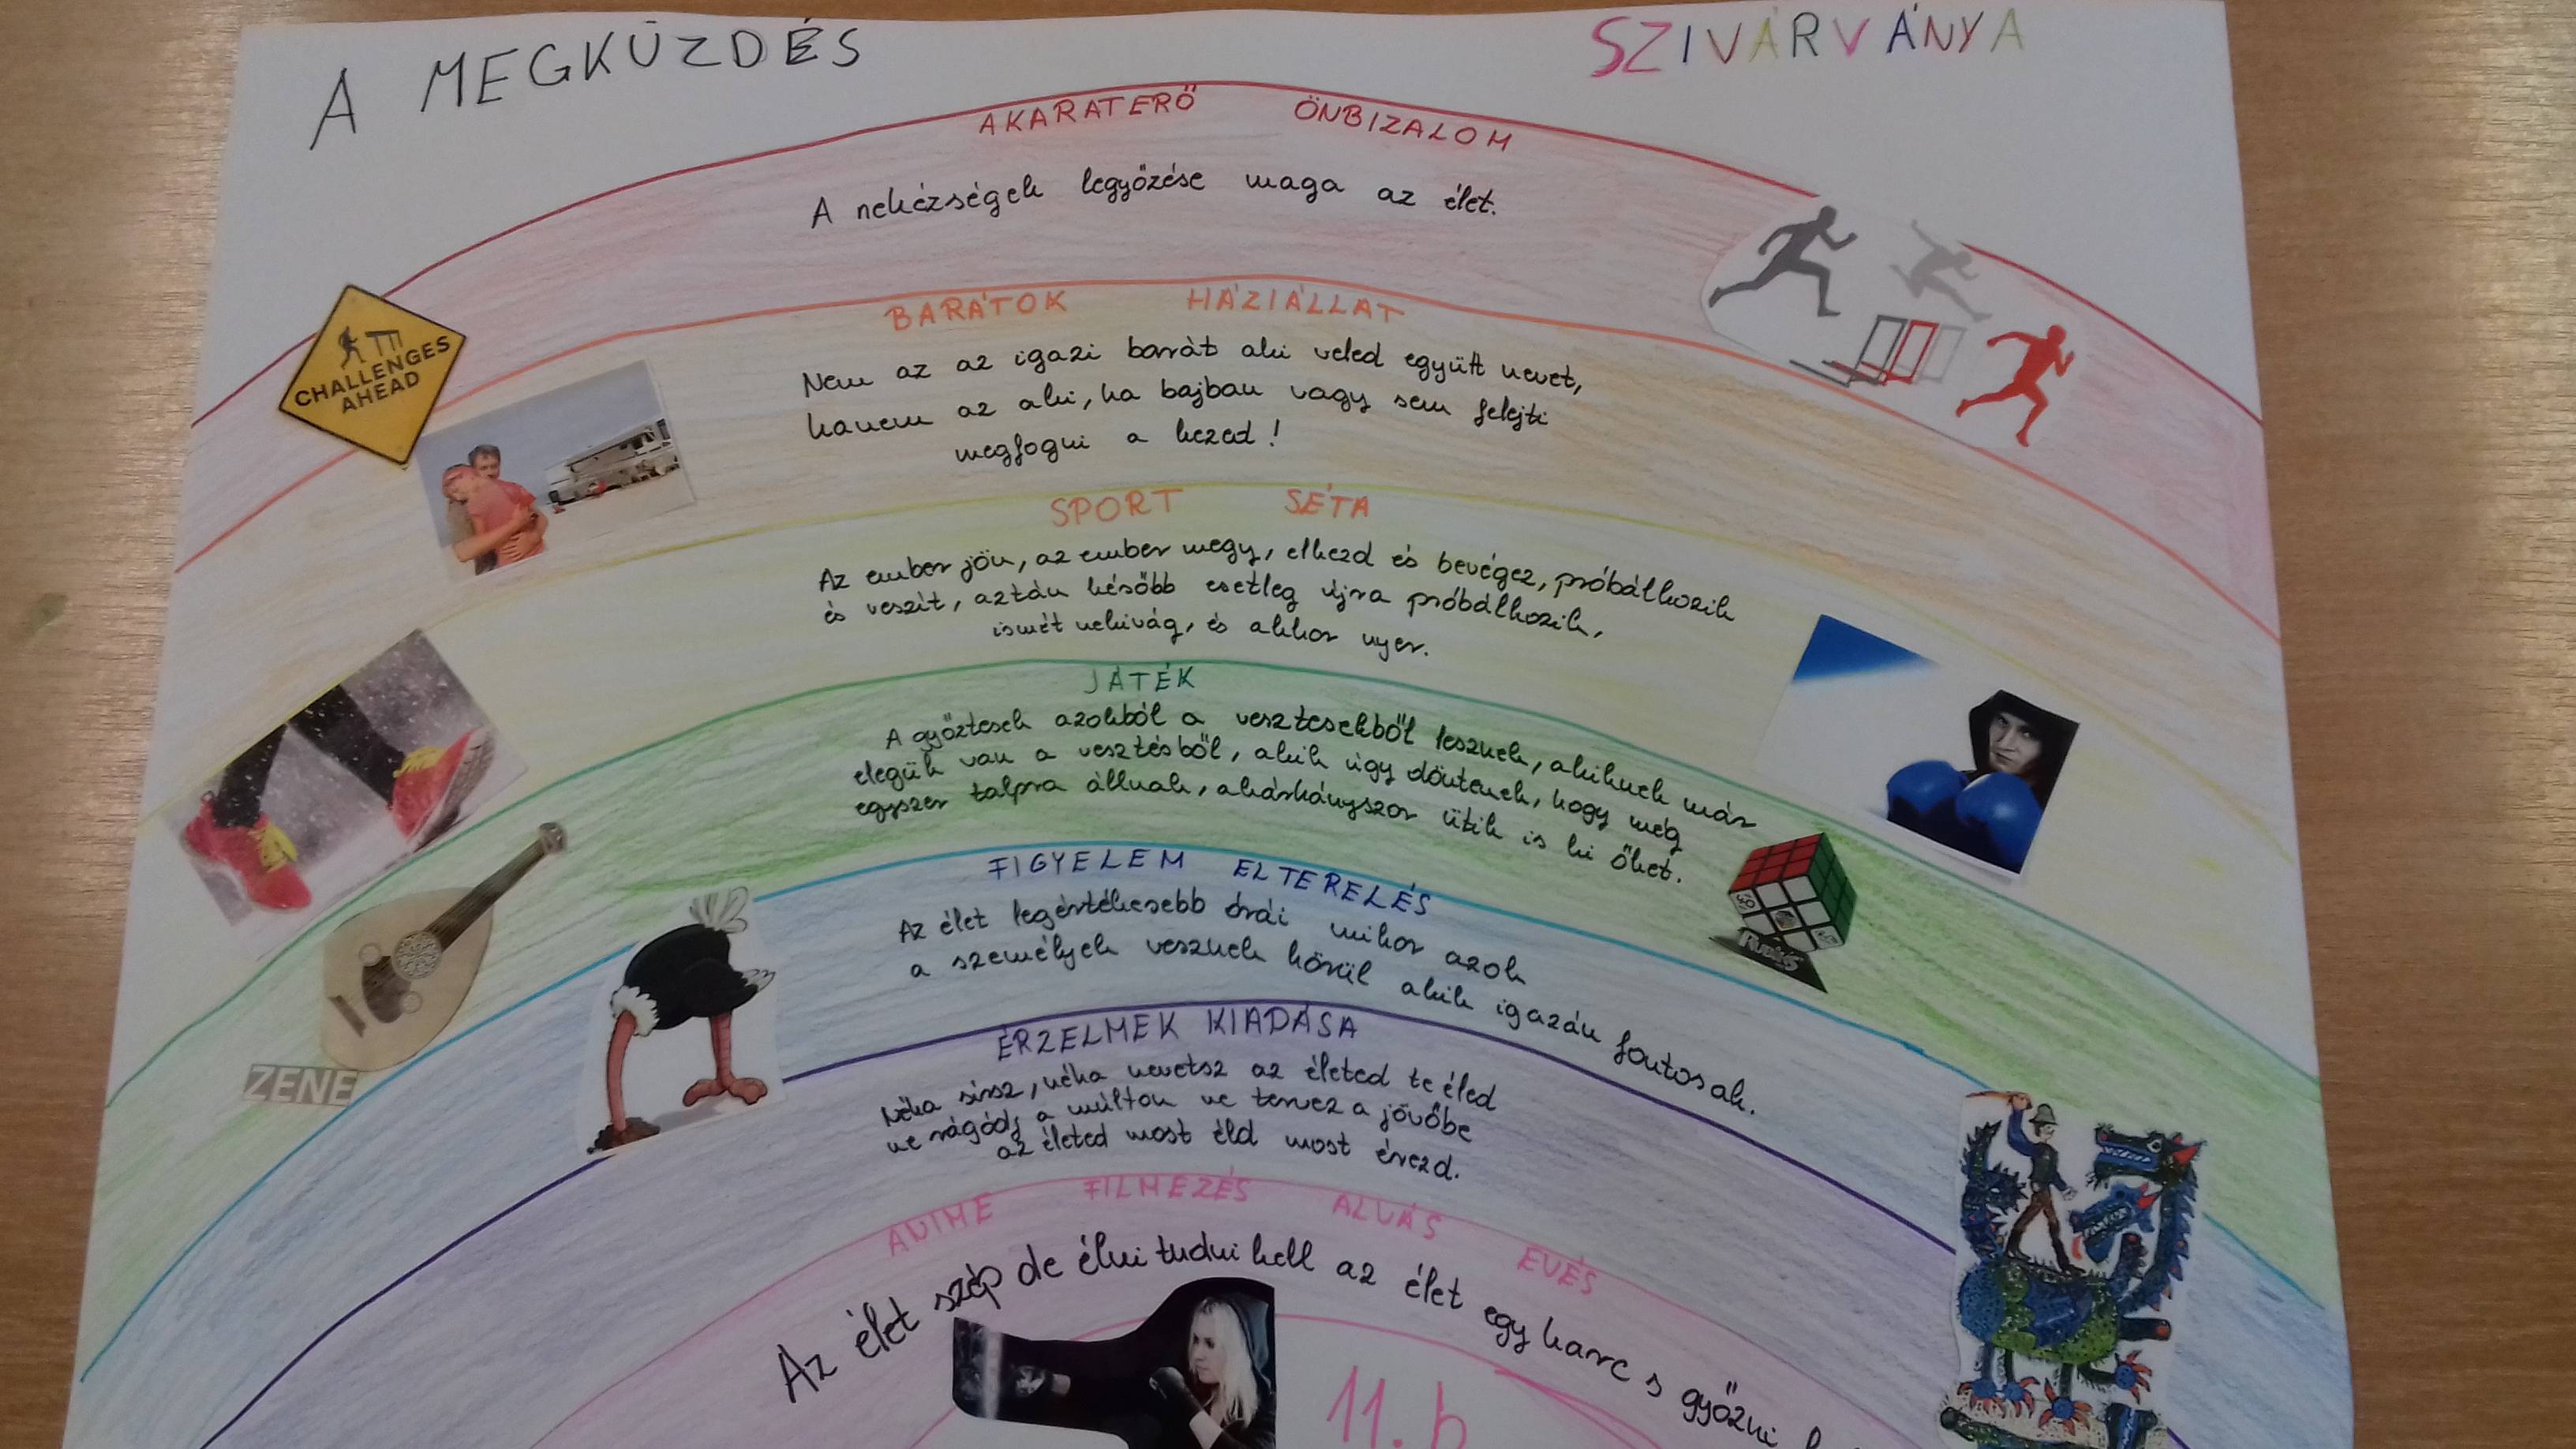 A MEGKÜZDÉS SZIVÁRVÁNYA
AKARATERŐ ÖNBIZALOM
A nehézségek legyőzése maga az élet.
CHALLENGES
AHEAD
BARÁTOK HÁZIÁLLAT
Nem az az igazi barát aki veled együtt nevet,
hanem az aki, ha bajban vagy sem felejti
megfogni a kezed!
SPORT SÉTA
Az ember jön, az ember megy, elkezd és bevégez, próbálkozik
és veszít, aztán később esetleg újra próbálkozik,
ismét nekivág, és akkor nyer.
JÁTÉK
A győztesek azokból a vesztesekből lesznek, akiknek már
elegük van a vesztésből, akik úgy döntenek, hogy még
egyszer talpra állnak, akárhányszor ütik is ki őket.
Rubik's
ZENE
FIGYELEM ELTERELÉS
Az élet legértékesebb órái mikor azok
a személyek vesznek körül akik igazán fontosak.
ÉRZELMEK KIADÁSA
Néha sírsz, néha nevetsz az életed te éled
ne rágódj a múlton ne tervez a jövőbe
az életed most éld most érezd.
ANIME FILMEZÉS ALVÁS EVÉS
Az élet szép de élni tudni kell az élet egy harc s győzni
11. b